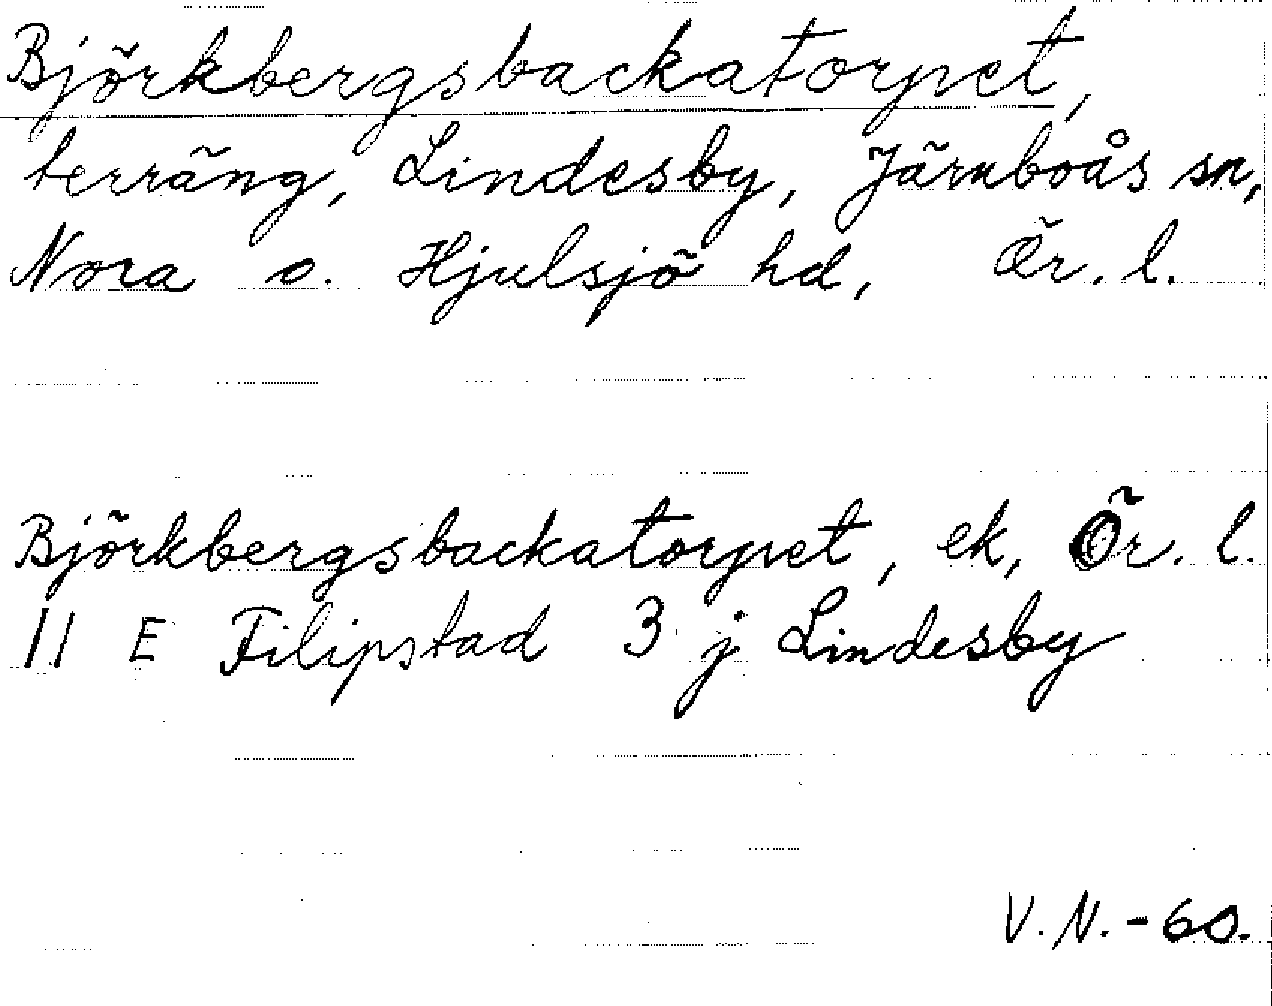 Björkbergsbackatorpet,
terräng, Lindesby, Järnboås sn,
Nora o. Hjulsjö hd, Ör. l.
Björkbergsbackatorpet, ek, Ör. l.
11 E Filipstad 3 j Lindesby
V. N. - 60.